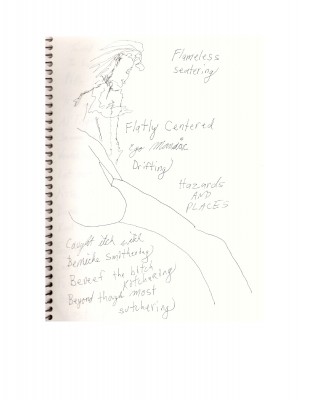 Flameless
seatering
Flatly Cantered
ego
Drifting
Hazards
AND
PLACES
Caught itch with
Smithering
Bereef the bitch
Kotchering
Beyond though most
sutchering